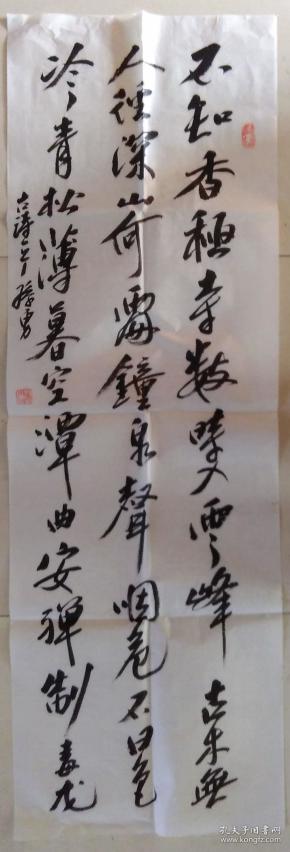 不知香積寺數里入雲峰古木無
人徑深山何處鐘泉聲咽危石日色
冷青松薄暮空潭曲安禪制毒龙
古詩一首
孔夫子旧书网